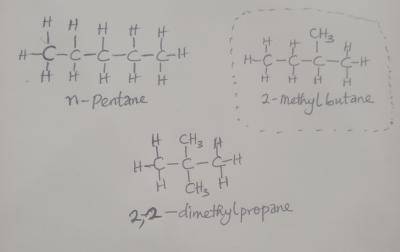 H H H H H
H-C-C-C-C-C-H
H H H H H
n-Pentane
H H CH3 H
H-C-C-C-C-H
H H H H
2-methylbutane
H CH3 H
H-C-C-C-H
H CH3 H
2,2-dimethylpropane